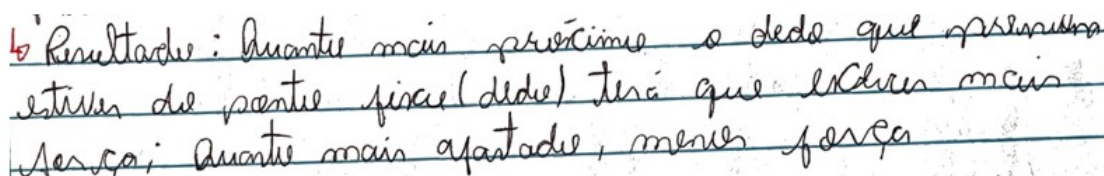 ↳ Resultado: Quanto mais próximo o dedo que pressiona
estiver do ponto fixo (dedo) terá que exercer mais
força; Quanto mais afastado, menor força